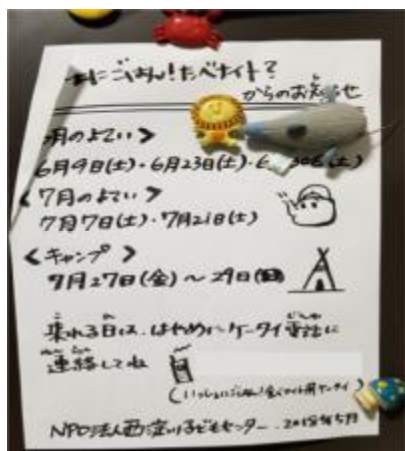 にごはん!たべナイト?
からのお知らせ
月のよてい>
6月9日(土)・6月23日(土)・6 30日(土)
<7月のよてい>
7月7日(土)・7月21日(土)
<キャンプ>
7月27日(金)〜29日(日)
来れる日は、はやめにケータイ電話に
連絡してね
(いっしょにごはん!食べナイト用ケータイ)
NPO法人西淀川子どもセンター 2018年5月